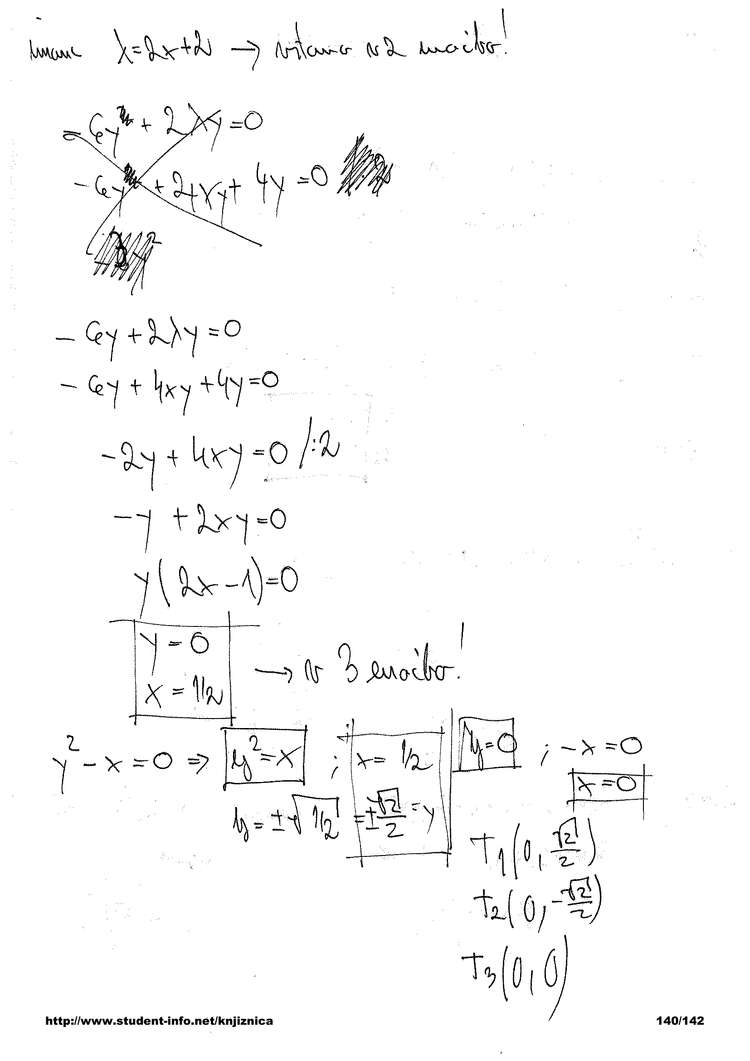 imamo λ=2x+2 → vstavimo v 2 enačbo!
-6y + 2λy=0
-6y + 2·4xy + 4y=0
-6y+2λy=0
-6y+4xy+4y=0
-2y+4xy=0 /:2
-y+2xy=0
y(2x-1)=0
y=0
x=1/2
→ v 3 enačbo!
y²-x=0 ⇒ y²=x ; x=1/2 y=0 ; -x=0
x=0
y=±√1/2 =±√2/2=y
T1(0,√2/2)
T2(0,-√2/2)
T3(0,0)
http://www.student-info.net/knjiznica 140/142